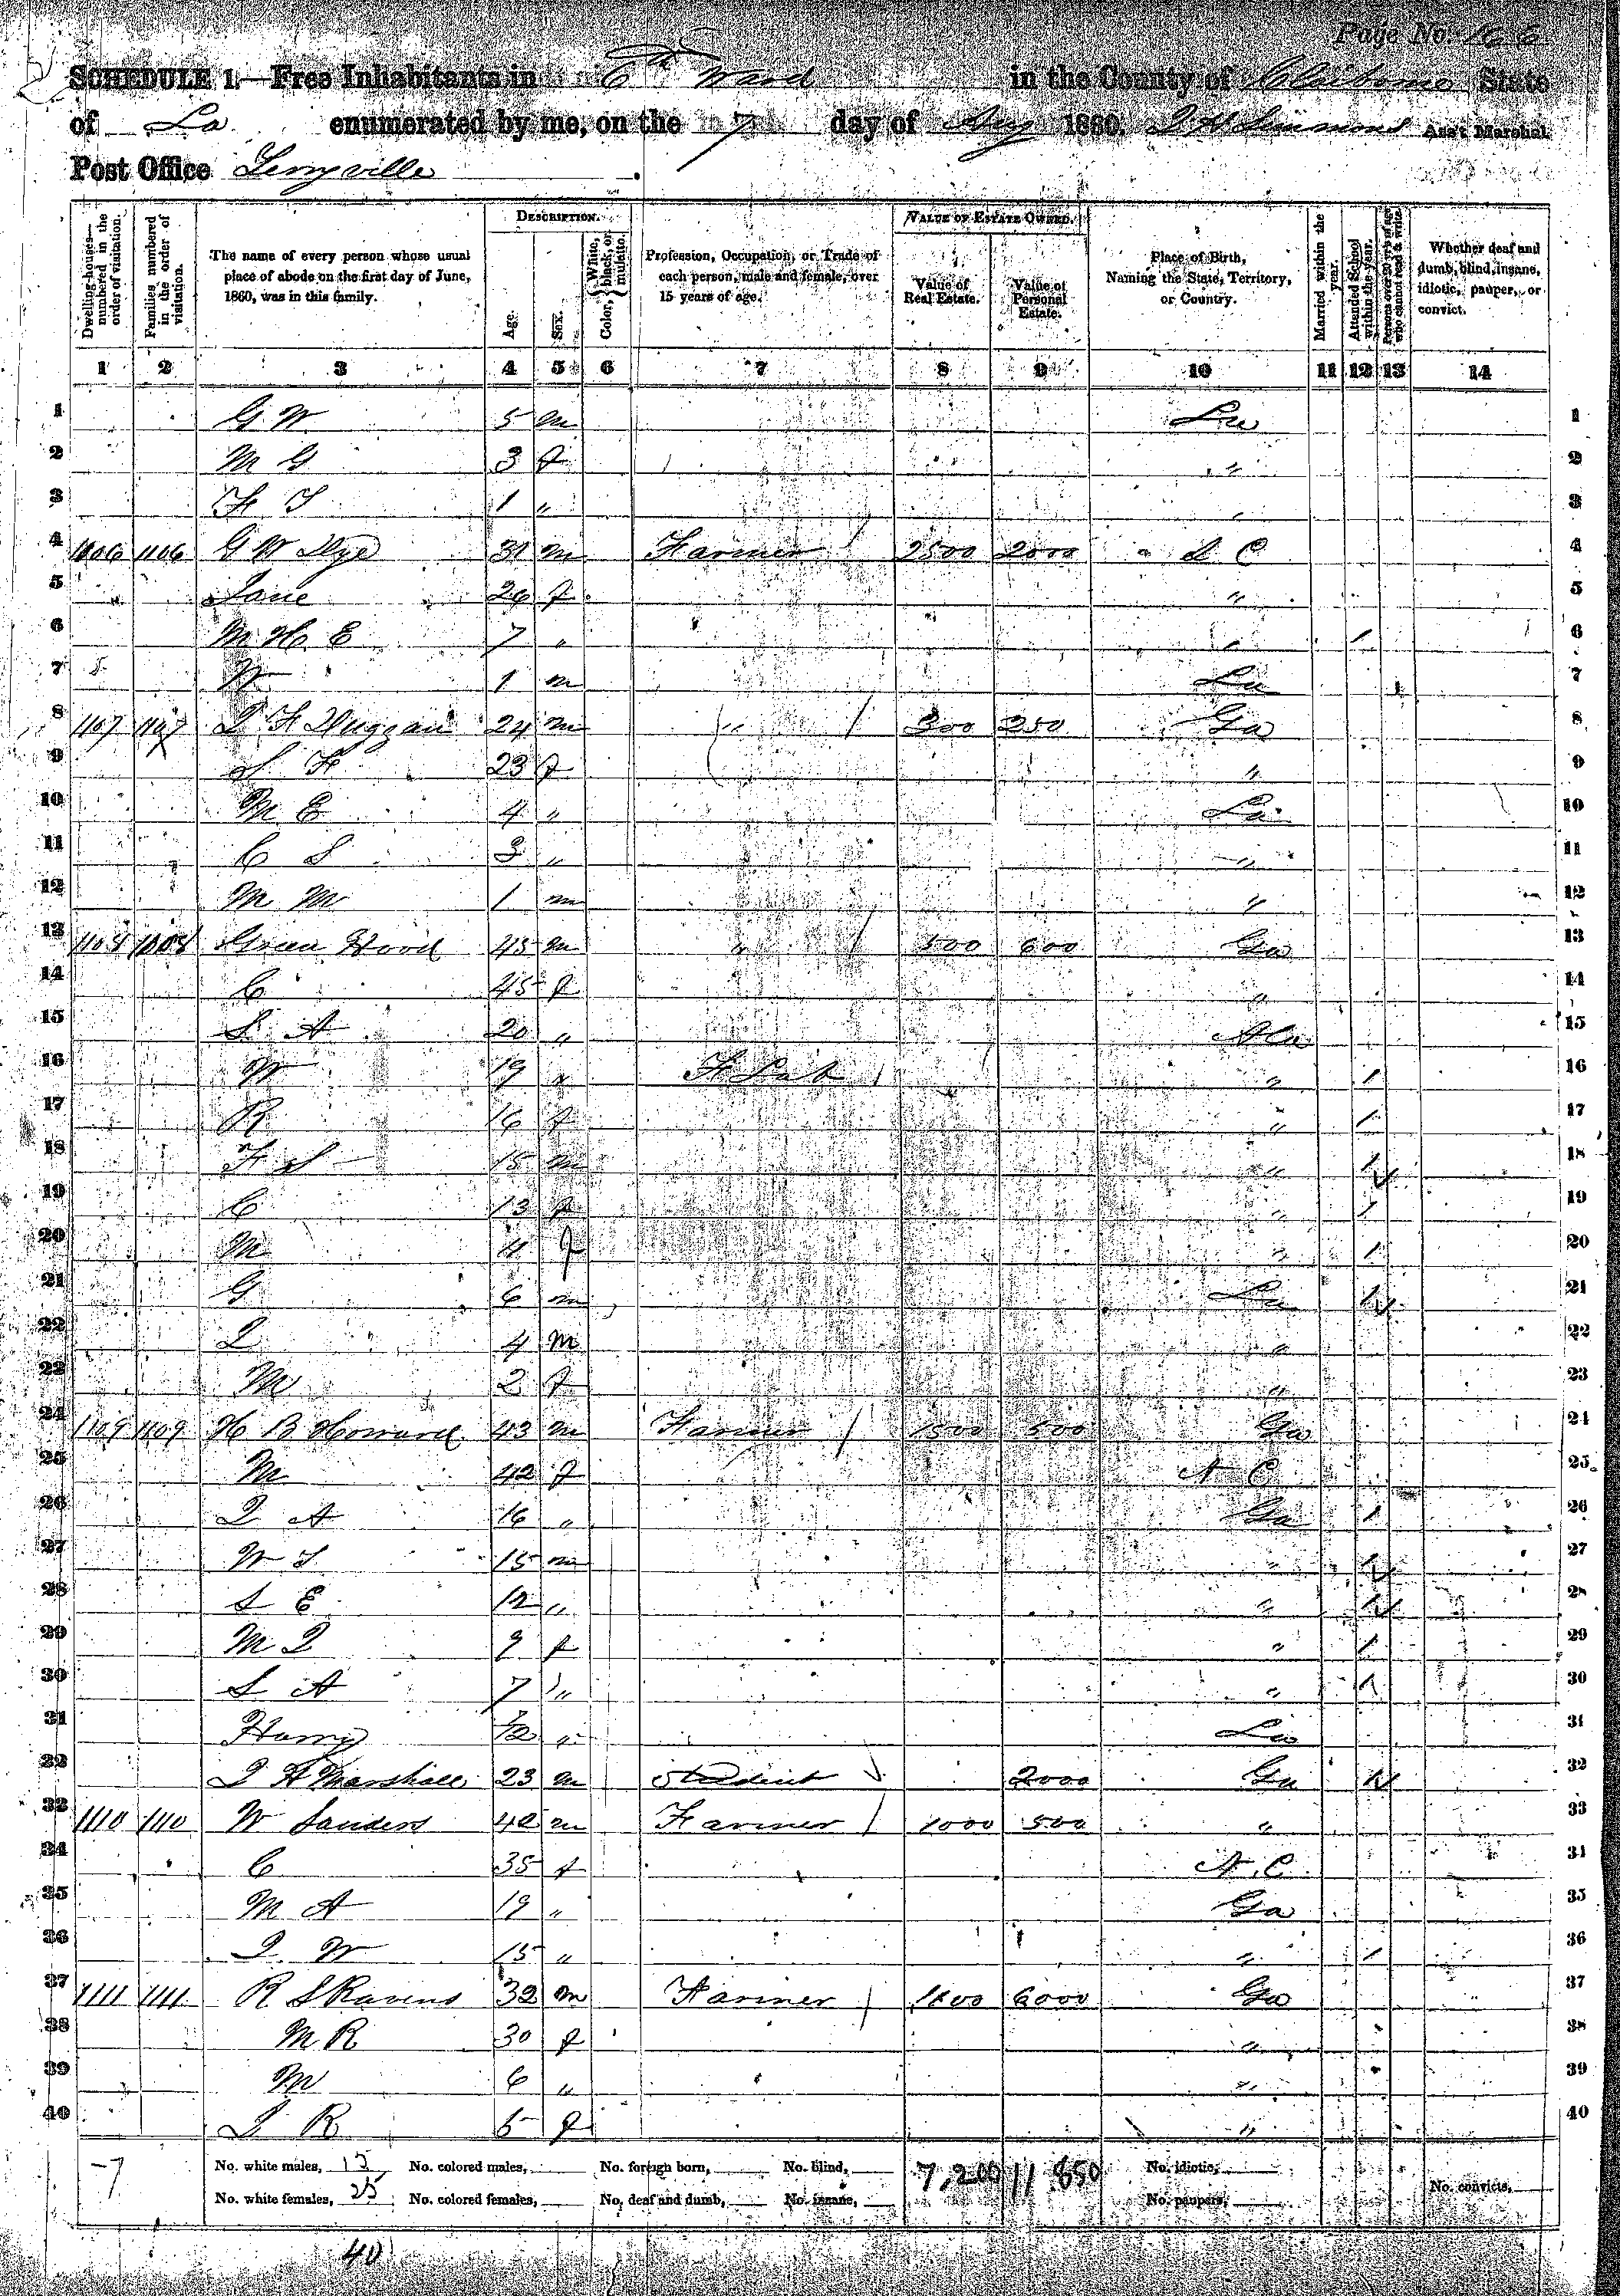 Page No. 166
SCHEDULE 1.—Free Inhabitants in 6th Ward in the County of Claiborne State
of La enumerated by me, on the 7 day of Aug 1860. J H Simmons Ass't Marshal.
Post Office
Dwelling-houses—numbered in the order of visitation.
Families numbered in the order of visitation.
The name of every person whose usual place of abode on the first day of June, 1860, was in this family.
DESCRIPTION.
Age.
Sex.
Color, White, black, or mulatto.
Profession, Occupation, or Trade of each person, male and female, over 15 years of age.
VALUE OF ESTATE OWNED.
Value of Real Estate.
Value of Personal Estate.
Place of Birth, Naming the State, Territory, or Country.
Married within the year.
Attended School within the year.
Persons over 20 y'rs of age who cannot read & write.
Whether deaf and dumb, blind, insane, idiotic, pauper, or convict.
1 2 3 4 5 6 7 8 9 10 11 12 13 14
1 G W 5 m La 1
2 M G 3 f " 2
3 1 " " 3
4 1106 1106 G W Dye 31 m Farmer / 2500 2000 S C 4
5 Jane 26 f " 5
6 M H E 7 " " / 6
7 W 1 m La 7
8 1107 1107 J F Duggan 24 m " / 300 250 Ga 8
9 S F 23 f " 9
10 M E 4 " La 10
11 C S 3 " " 11
12 M M 1 m " 12
13 1108 1108 Green Hood 45 m " / 500 600 Ga 13
14 C 45 f " 14
15 S A 20 " Ala 15
16 W 19 F Lab / " / 16
17 R 16 f " / 17
18 F S 15 m " / 18
19 C 13 f " / 19
20 M f " / 20
21 G 6 m La / 21
22 J 4 m " 22
23 M 2 f " 23
24 1109 1109 H B Howard 43 m Farmer / 1500 500 Ga 24
25 M 42 f N C 25
26 J A 16 " Ga / 26
27 W T 15 m " / 27
28 S E 12 " " / 28
29 M J 9 f " / 29
30 S A 7 " " / 30
31 " La 31
32 J A Marshall 23 m Student 2000 Ga / 32
33 1110 1110 W Sanders 42 m Farmer / 1000 500 " 33
34 C 35 f N C 34
35 M A 19 " Ga 35
36 J W 15 " " / 36
37 1111 1111 R S 32 m Farmer / 6000 Ga 37
38 M R 30 f " 38
39 M 6 " " 39
40 J R 5 f " 40
7 No. white males, 15 No. colored males, No. foreign born, No. blind, 7,200 11.850 No. idiotic,
No. white females, 25 No. colored females, No. deaf and dumb, No. insane, No. paupers, No. convicts,
40